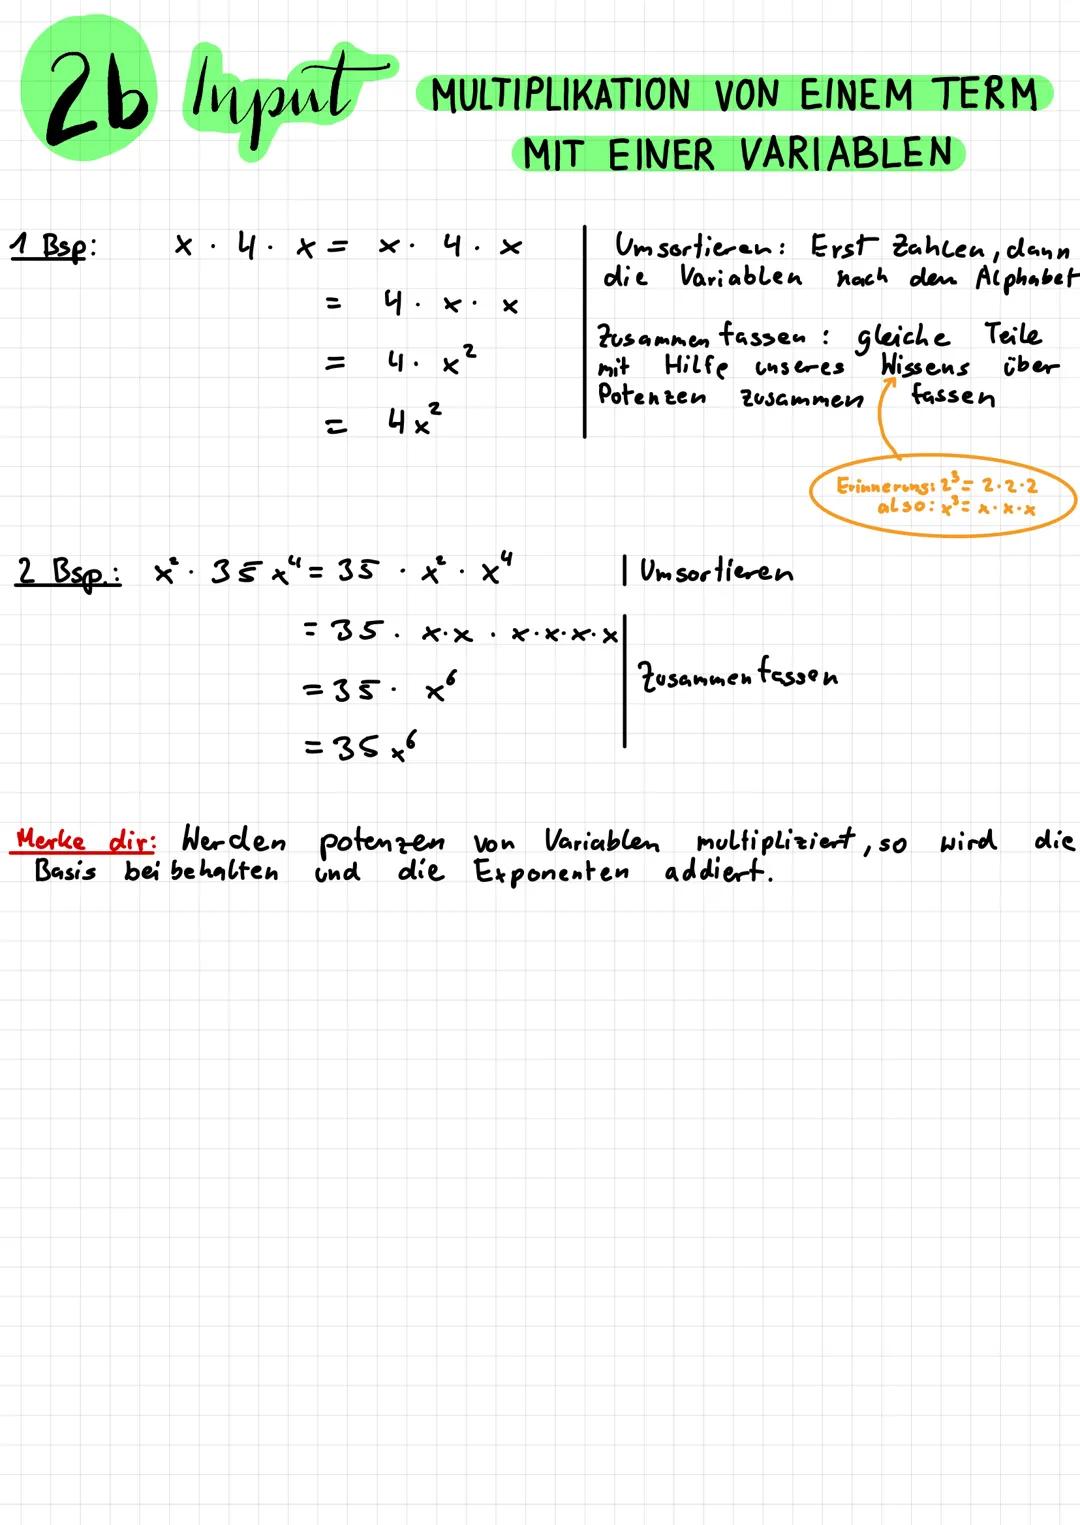 2b Input MULTIPLIKATION VON EINEM TERM
MIT EINER VARIABLEN
1 Bsp: x · 4 · x = x · 4 · x
= 4 · x · x
= 4 · x²
= 4x²
Umsortieren: Erst Zahlen, dann
die Variablen nach dem Alphabet
Zusammenfassen: gleiche Teile
mit Hilfe unseres Wissens über
Potenzen zusammen fassen
Erinnerung: 2³ = 2·2·2
also: x³ = x·x·x
2 Bsp.: x² · 35x⁴ = 35 · x² · x⁴ | Umsortieren
= 35 · x·x · x·x·x·x
= 35 · x⁶
= 35x⁶
Zusammenfassen
Merke dir: Werden potenzen von Variablen multipliziert, so wird die
Basis beibehalten und die Exponenten addiert.